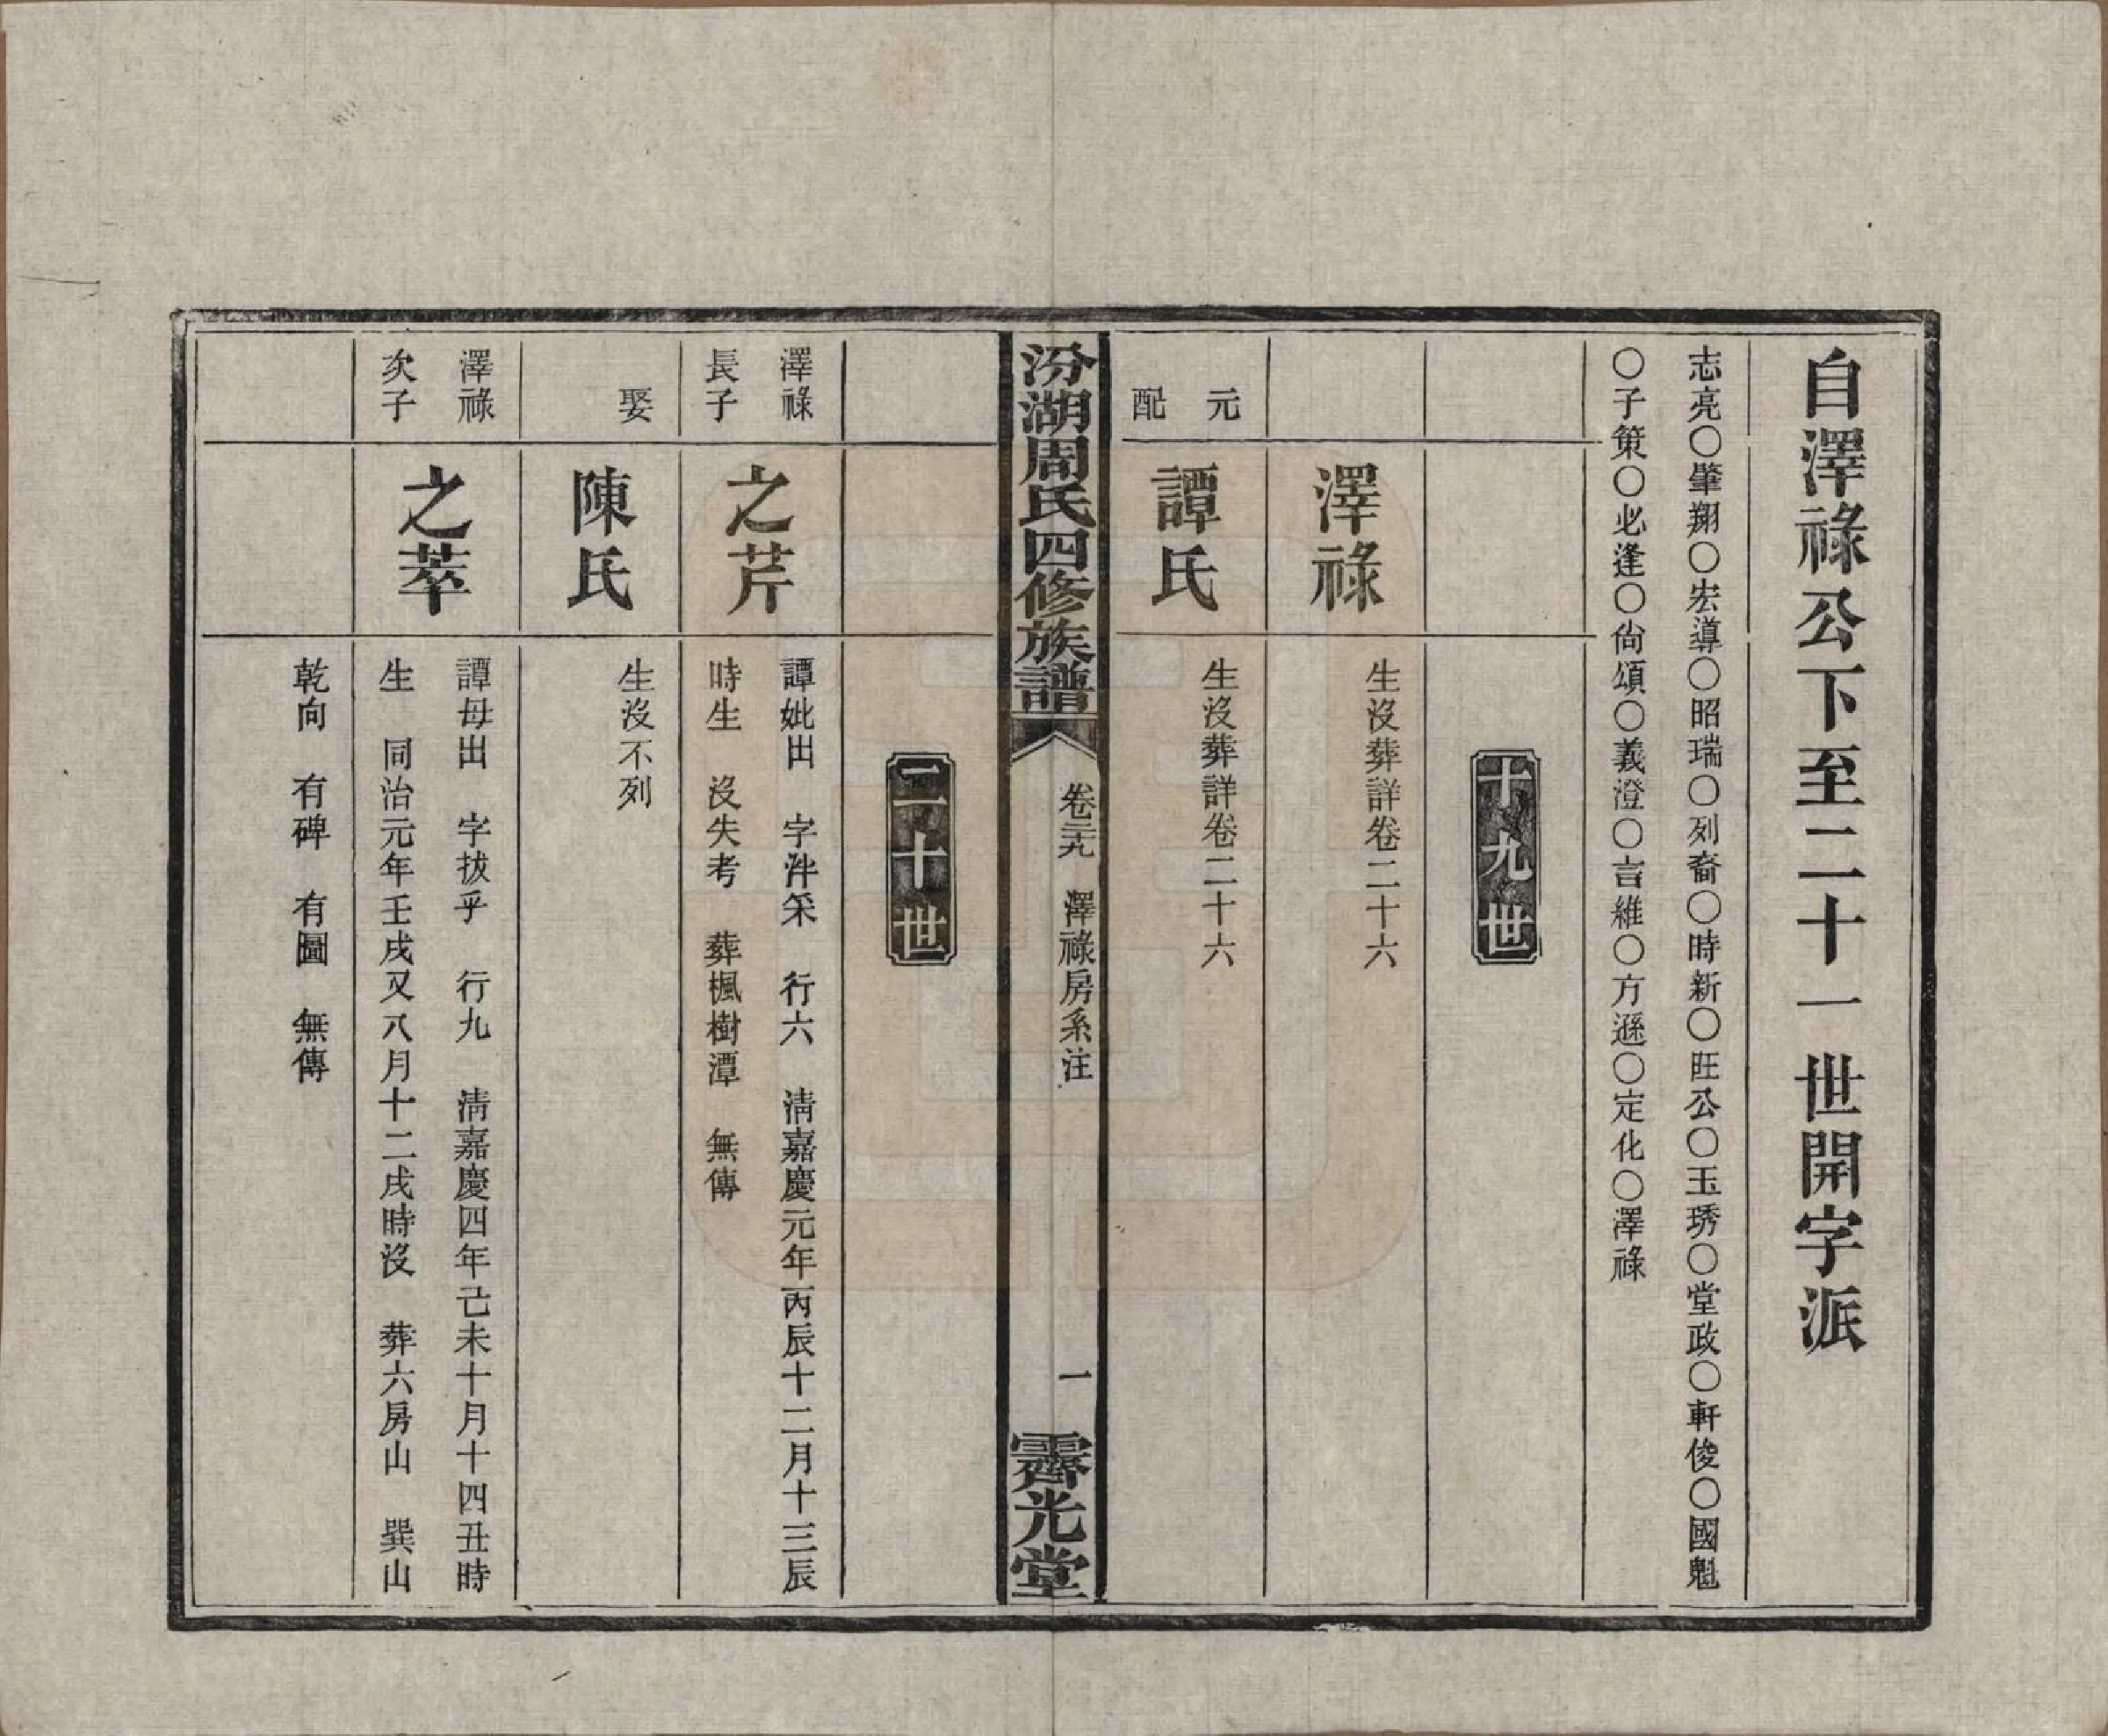 自澤祿公下至二十一世開字派
志亮〇肇翔〇宏導〇昭瑞〇列裔〇時新〇旺公〇玉琇〇堂政〇軒俊〇國魁
〇子策〇必逢〇尙頌〇義澄〇言維〇方遜〇定化〇澤祿
十九世
澤祿
生沒葬詳卷二十六
元配
譚氏
生沒葬詳卷二十六
汾湖周氏四修族譜
卷二十九 澤祿房系注
一
霽光堂
二十世
澤祿
長子
之芹
譚妣出 字泮采 行六 淸嘉慶元年丙辰十二月十三辰
時生 沒失考 葬楓樹潭 無傳
娶
陳氏
生沒不列
澤祿
次子
之萃
譚母出 字拔乎 行九 淸嘉慶四年己未十月十四丑時
生 同治元年壬戌又八月十二戌時沒 葬六房山 巽山
乾向 有碑 有圖 無傳